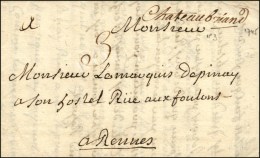 Chateaubriand
Monsieur
5
Monsieur Lamarquis Depinay
a Son hostel Rue aux foulons
a Rennes